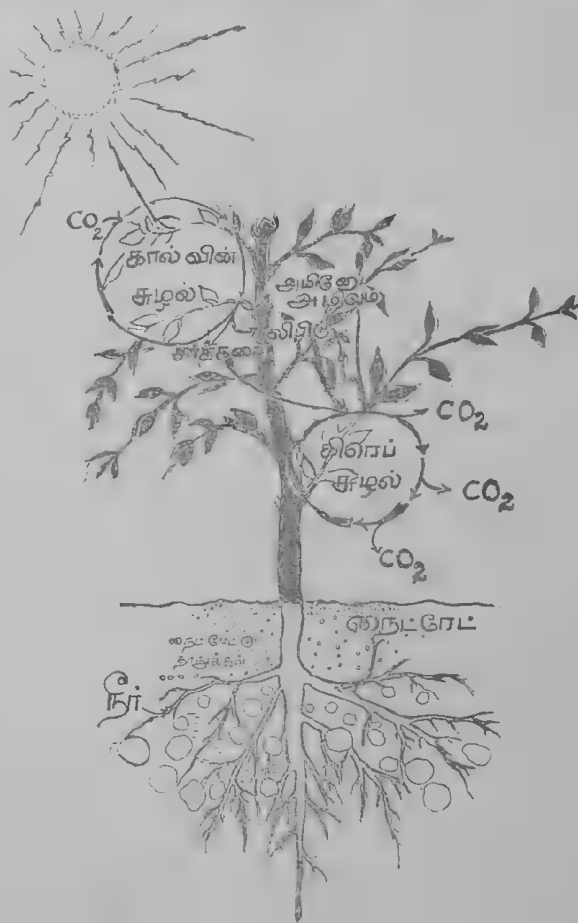 CO₂
கால்வின்
சுழல்
அமினோ
அமிலம்
லிபிட்
சர்க்கரை
CO₂
கிரெப்
சுழல்
CO₂
CO₂
நைட்ரேட்
நைட்ரேட்
நீர்